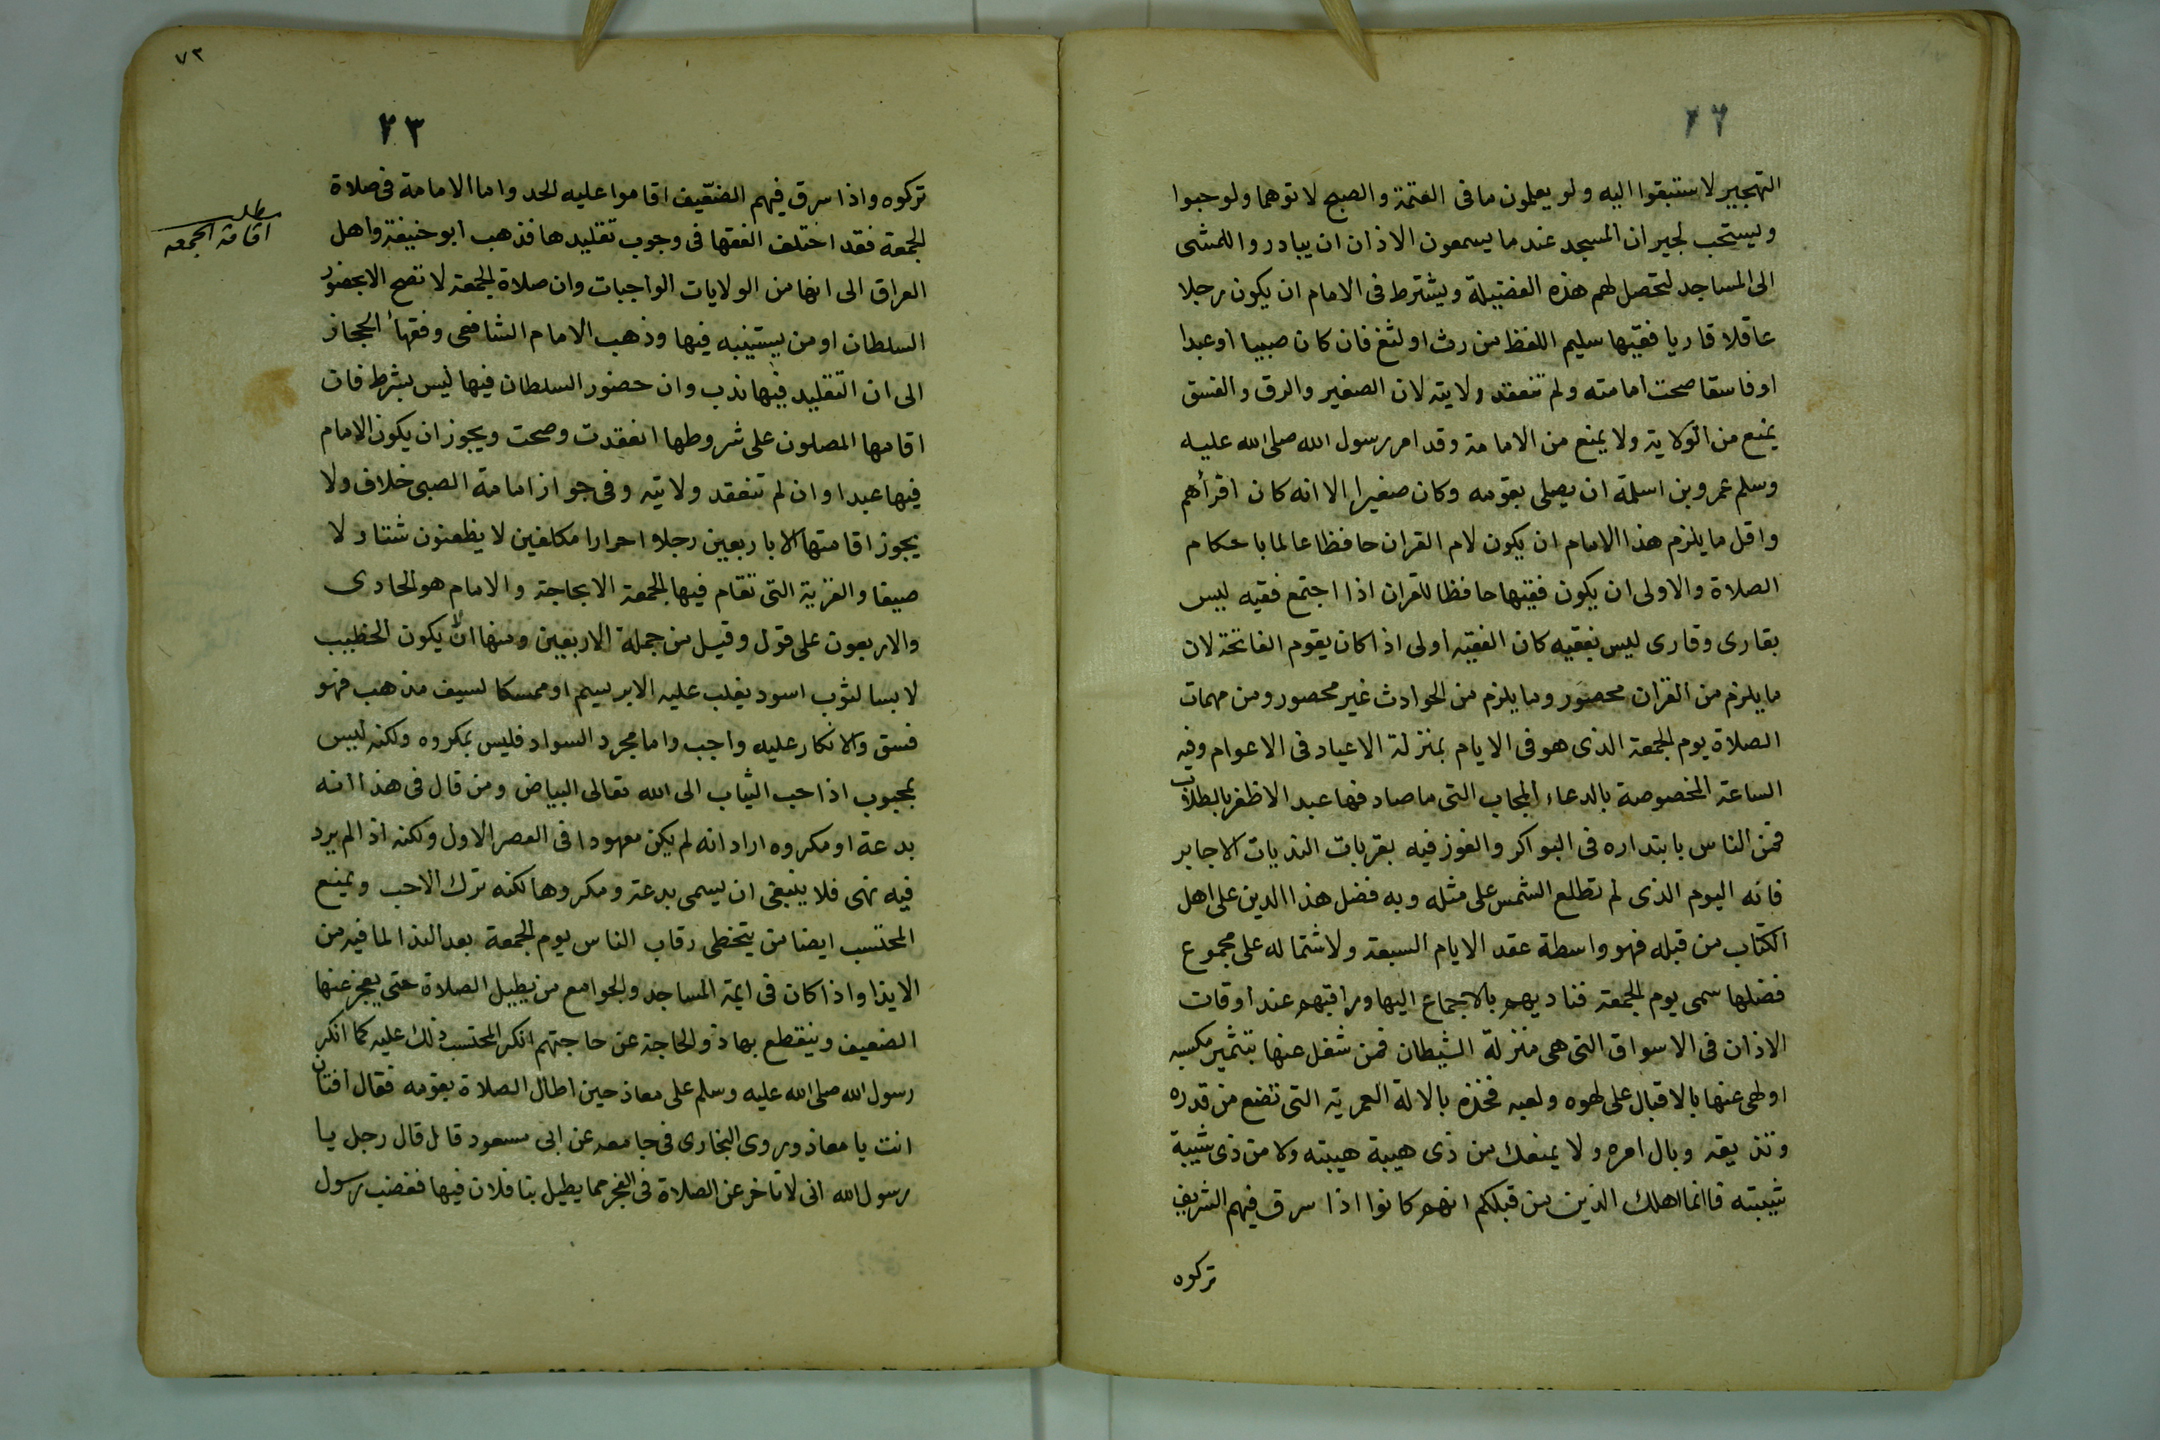 ٢٢
التهجير لاستبقوا اليه ولو يعلمون ما في العتمة والصبح لاتوهما ولو حبوا
ويستحب لجيران المسجد عند ما يسمعون الاذان ان يبادروا للمشى
الى المساجد لتحصل لهم هذه الفضيلة ويشترط فى الامام ان يكون رجلا
عاقلا قاريا فقيها سليم اللفظ من رث او لثغ فان كان صبيا او عبدا
او فاسقا صحت امامته ولم تنعقد ولايته لان الصغير والرق والفسق
يمنع من الولاية ولا يمنع من الامامة وقد امر رسول الله صلى الله عليه
وسلم عمرو بن اسلمة ان يصلى بقومه وكان صغيرا الا انه كان اقرأهم
واقل ما يلزم هذا الامام ان يكون لام القران حافظا عالما باحكام
الصلاة والاولى ان يكون فقيها حافظا للقران اذا اجتمع فقيه ليس
بقارى وقارى ليس بفقيه كان الفقيه اولى اذا كان يقوم الفاتحة لان
ما يلزم من القران محصور وما يلزم من الحوادث غير محصور ومن مهمات
الصلاة يوم الجمعة الذى هو فى الايام بمنزلة الاعياد فى الاعوام وفيه
الساعة المخصوصة بالدعاء المجاب التى ما صادفها عبد الا ظفر بالطلاب
فمن الناس بابتداره فى البواكر والفوز فيه بقربات الاجاير
فانه اليوم الذى لم تطلع الشمس على مثله وبه فضل هذا الدين على اهل
الكتاب من قبله فهو واسطة عقد الايام السبعة ولاشتماله على مجموع
فضلها سمى يوم الجمعة فناديهم بالاجماع اليها وراقبهم عند اوقات
الاذان فى الاسواق التى هى منزلة الشيطان فمن شغل عنها بتثمير مكسبه
او لهى عنها بالاقبال على لهوه ولعبه فخذه بالالة العمرية التى تضع من قدره
وتذيقه وبال امره ولا يمنعك من ذى هيبة هيبته ولا من ذى شيبة
شيبته فاانما اهلك الذين من قبلكم انهم كانوا اذا سرق فيهم الشريف
تركوه
٧٣
٢٣
تركوه واذا سرق فيهم الضعيف اقاموا عليه الحد واما الامامة فى صلاة
مطلب
اقامة الجمعه
الجمعة فقد اختلف الفقها فى وجوب تقليدها فذهب ابو حنيفة واهل
العراق الى انها من الولايات الواجبات وان صلاة الجمعة لا تصح الا بحضور
السلطان او من يستنيبه فيها وذهب الامام الشافعى وفقهاء الحجاز
الى ان التقليد فيها ندب وان حضور السلطان فيها ليس بشرط فان
اقامها المصلون على شروطها انعقدت وصحت ويجوز ان يكون الامام
فيها عبدا وان لم تنعقد ولايته وفى جواز امامة الصبى خلاف ولا
يجوز اقامتها الا باربعين رجلا احرارا مكلفين لا يظعنون شتاو لا
صيفا والقرية التى تقام فيها الجمعة الابحاجة والامام هو الحادى
والاربعون على قول وقيل من جملة الاربعين ومنها ان لا يكون الخطيب
لابسا لثوب اسود يغلب عليه الابريسم او ممسكا لسيف مذهب فهو
فسق والانكار عليه واجب واما مجرد السواد فليس بمكروه ولكنه ليس
بمحبوب اذ احب الثياب الى الله تعالى البياض ومن قال فى هذا انه
بدعة او مكروه اراد انه لم يكن معهودا فى العصر الاول ولكنه اذا لم يرد
فيه نهى فلا ينبغى ان يسمى بدعة ومكروها لكنه ترك الاحب ويمنع
المحتسب ايضا من يتخطى رقاب الناس يوم الجمعة بعد الندا لما فيه من
الايذا واذا كان فى ايمة المساجد والجوامع من يطيل الصلاة حتى يعجز عنها
الضعيف وينقطع بها ذو الحاجة عن حاجتهم انكر المحتسب ذلك عليه كما انكر
رسول الله صلى الله عليه وسلم على معاذ حين اطال الصلاة بقومه فقال افتان
انت يا معاذ وروى البخارى فى جامعه عن ابى مسعود قال قال رجل يا
رسول الله انى لاتاخر عن الصلاة فى الفجر مما يطيل بنا فلان فيها فغضب رسول